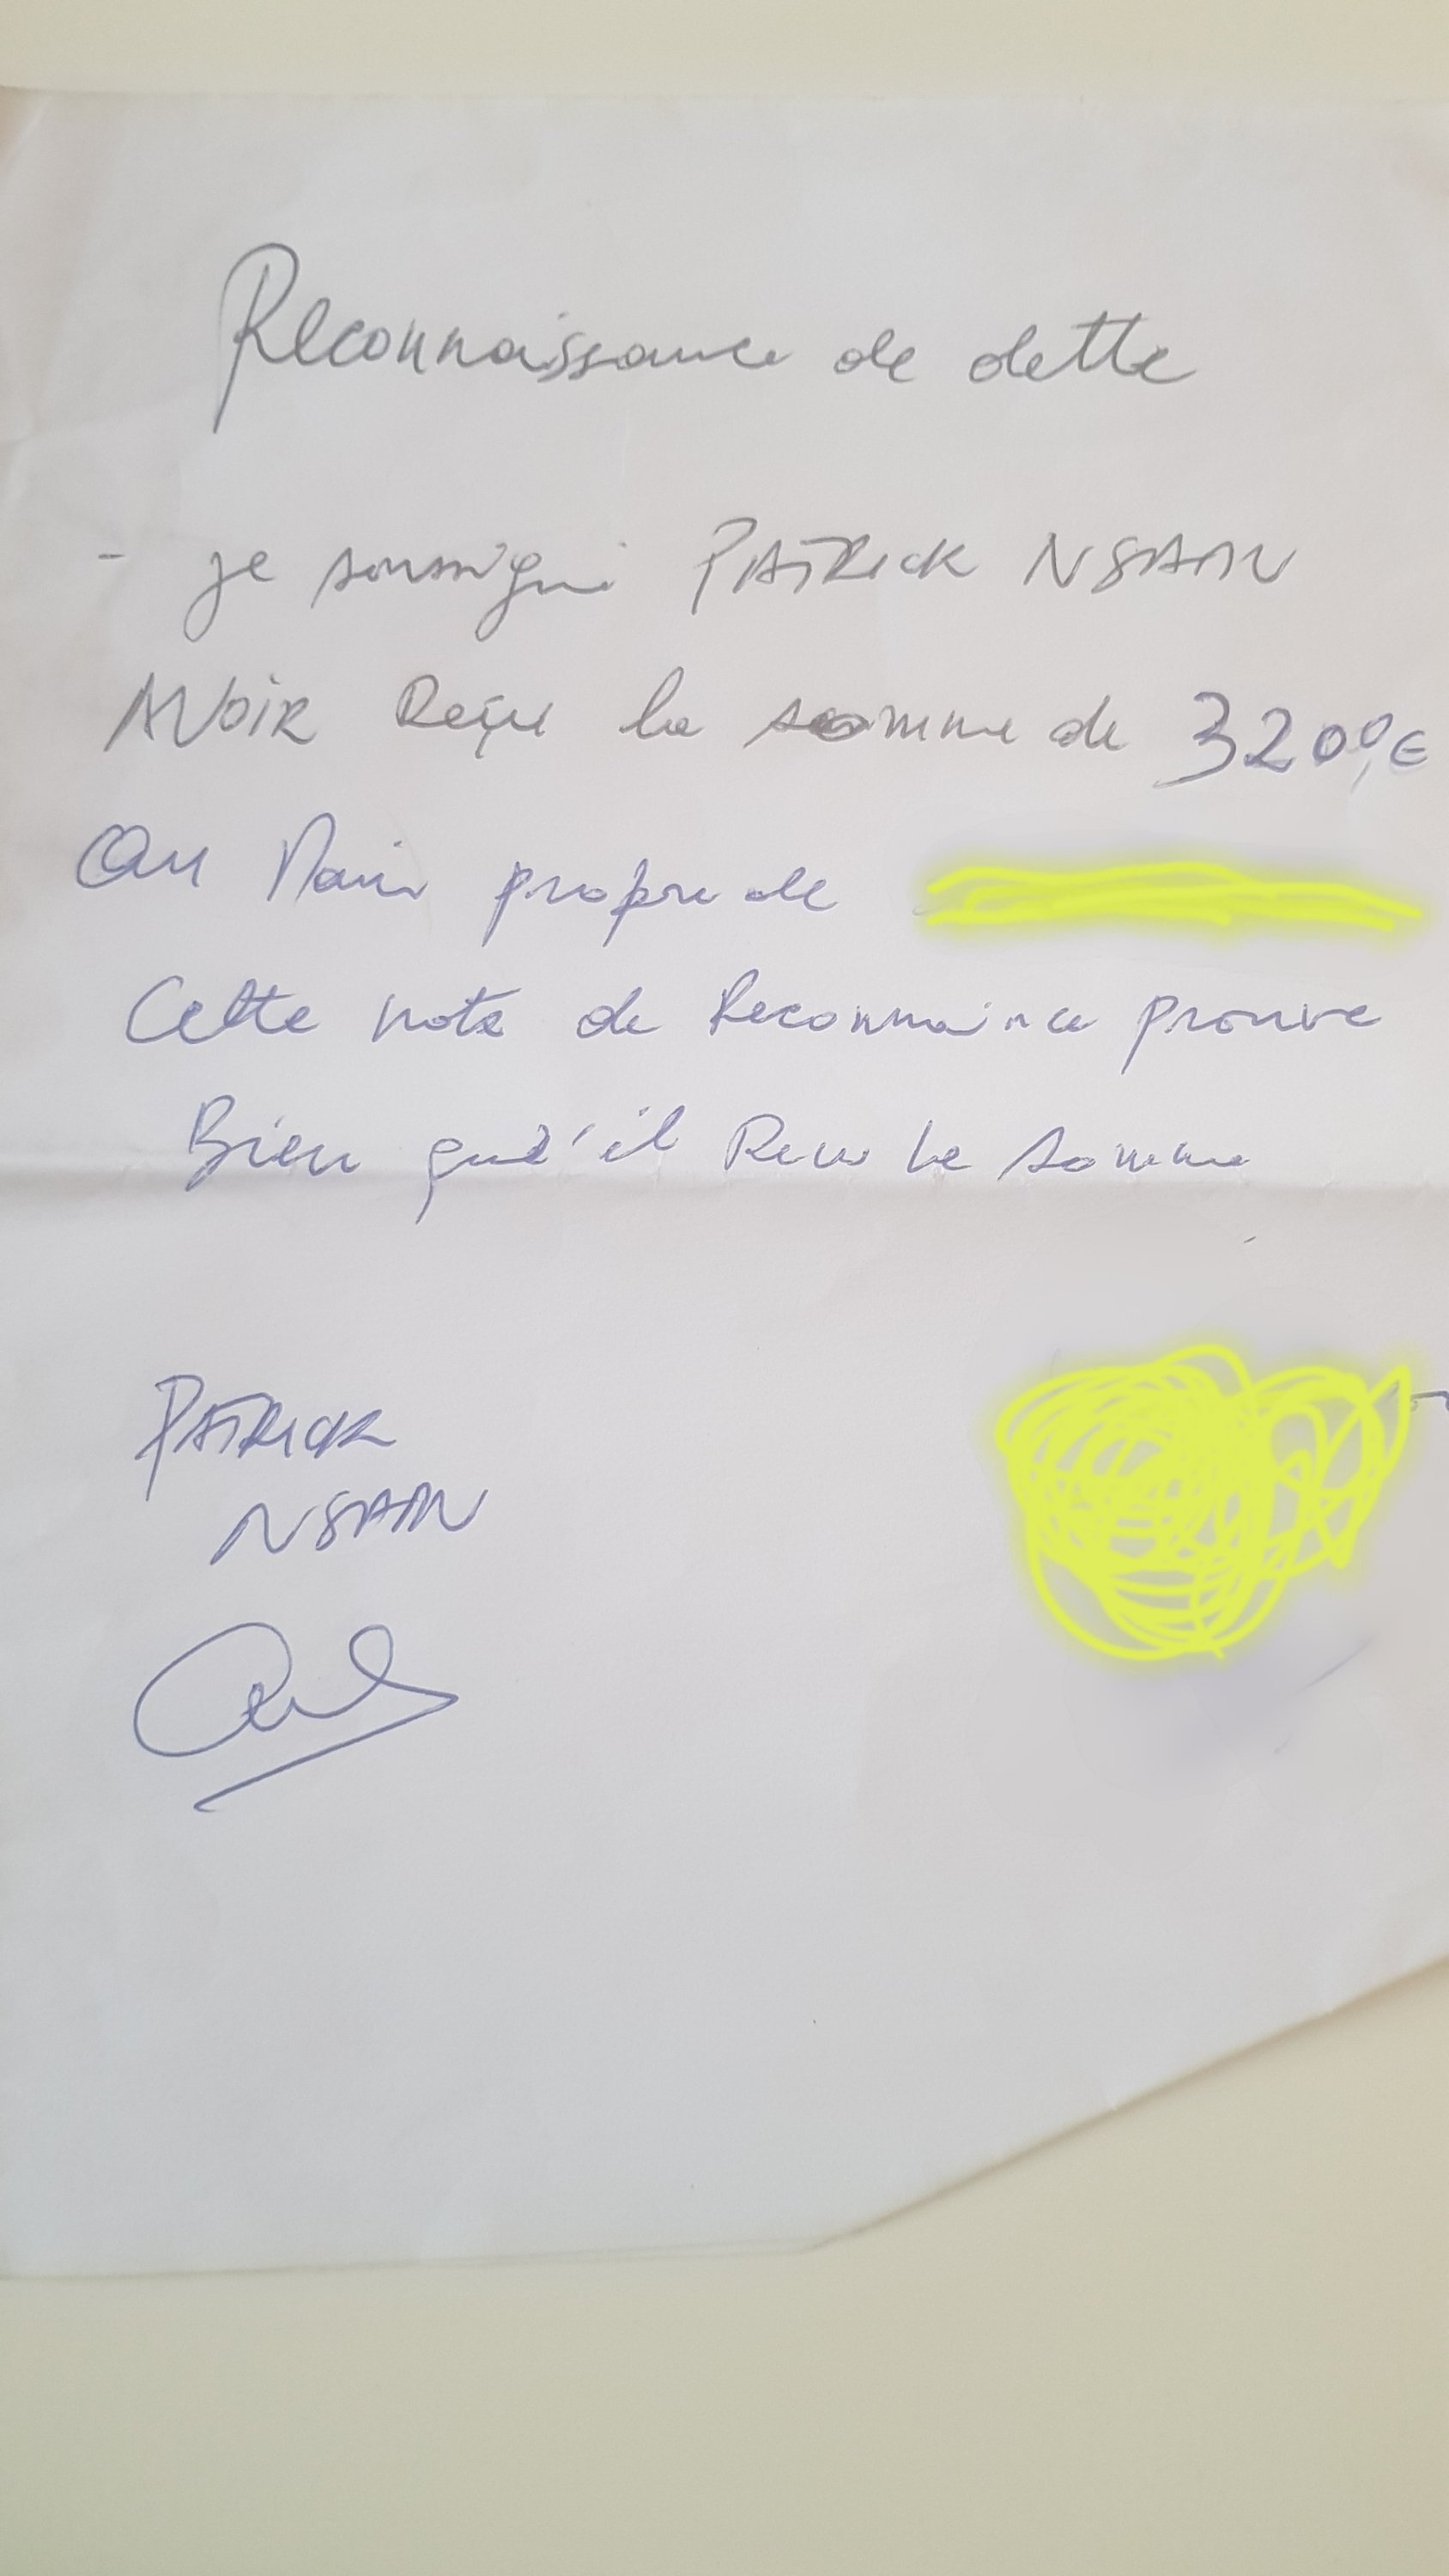 Reconnaissance de dette
- je soussigné PATRICK NSAAN
AVOIR Reçu la somme de 3200,€
au Main propre de
Cette note de Reconnaince prouve
Bien que'il Recu le somme
PATRICK
NSAAN